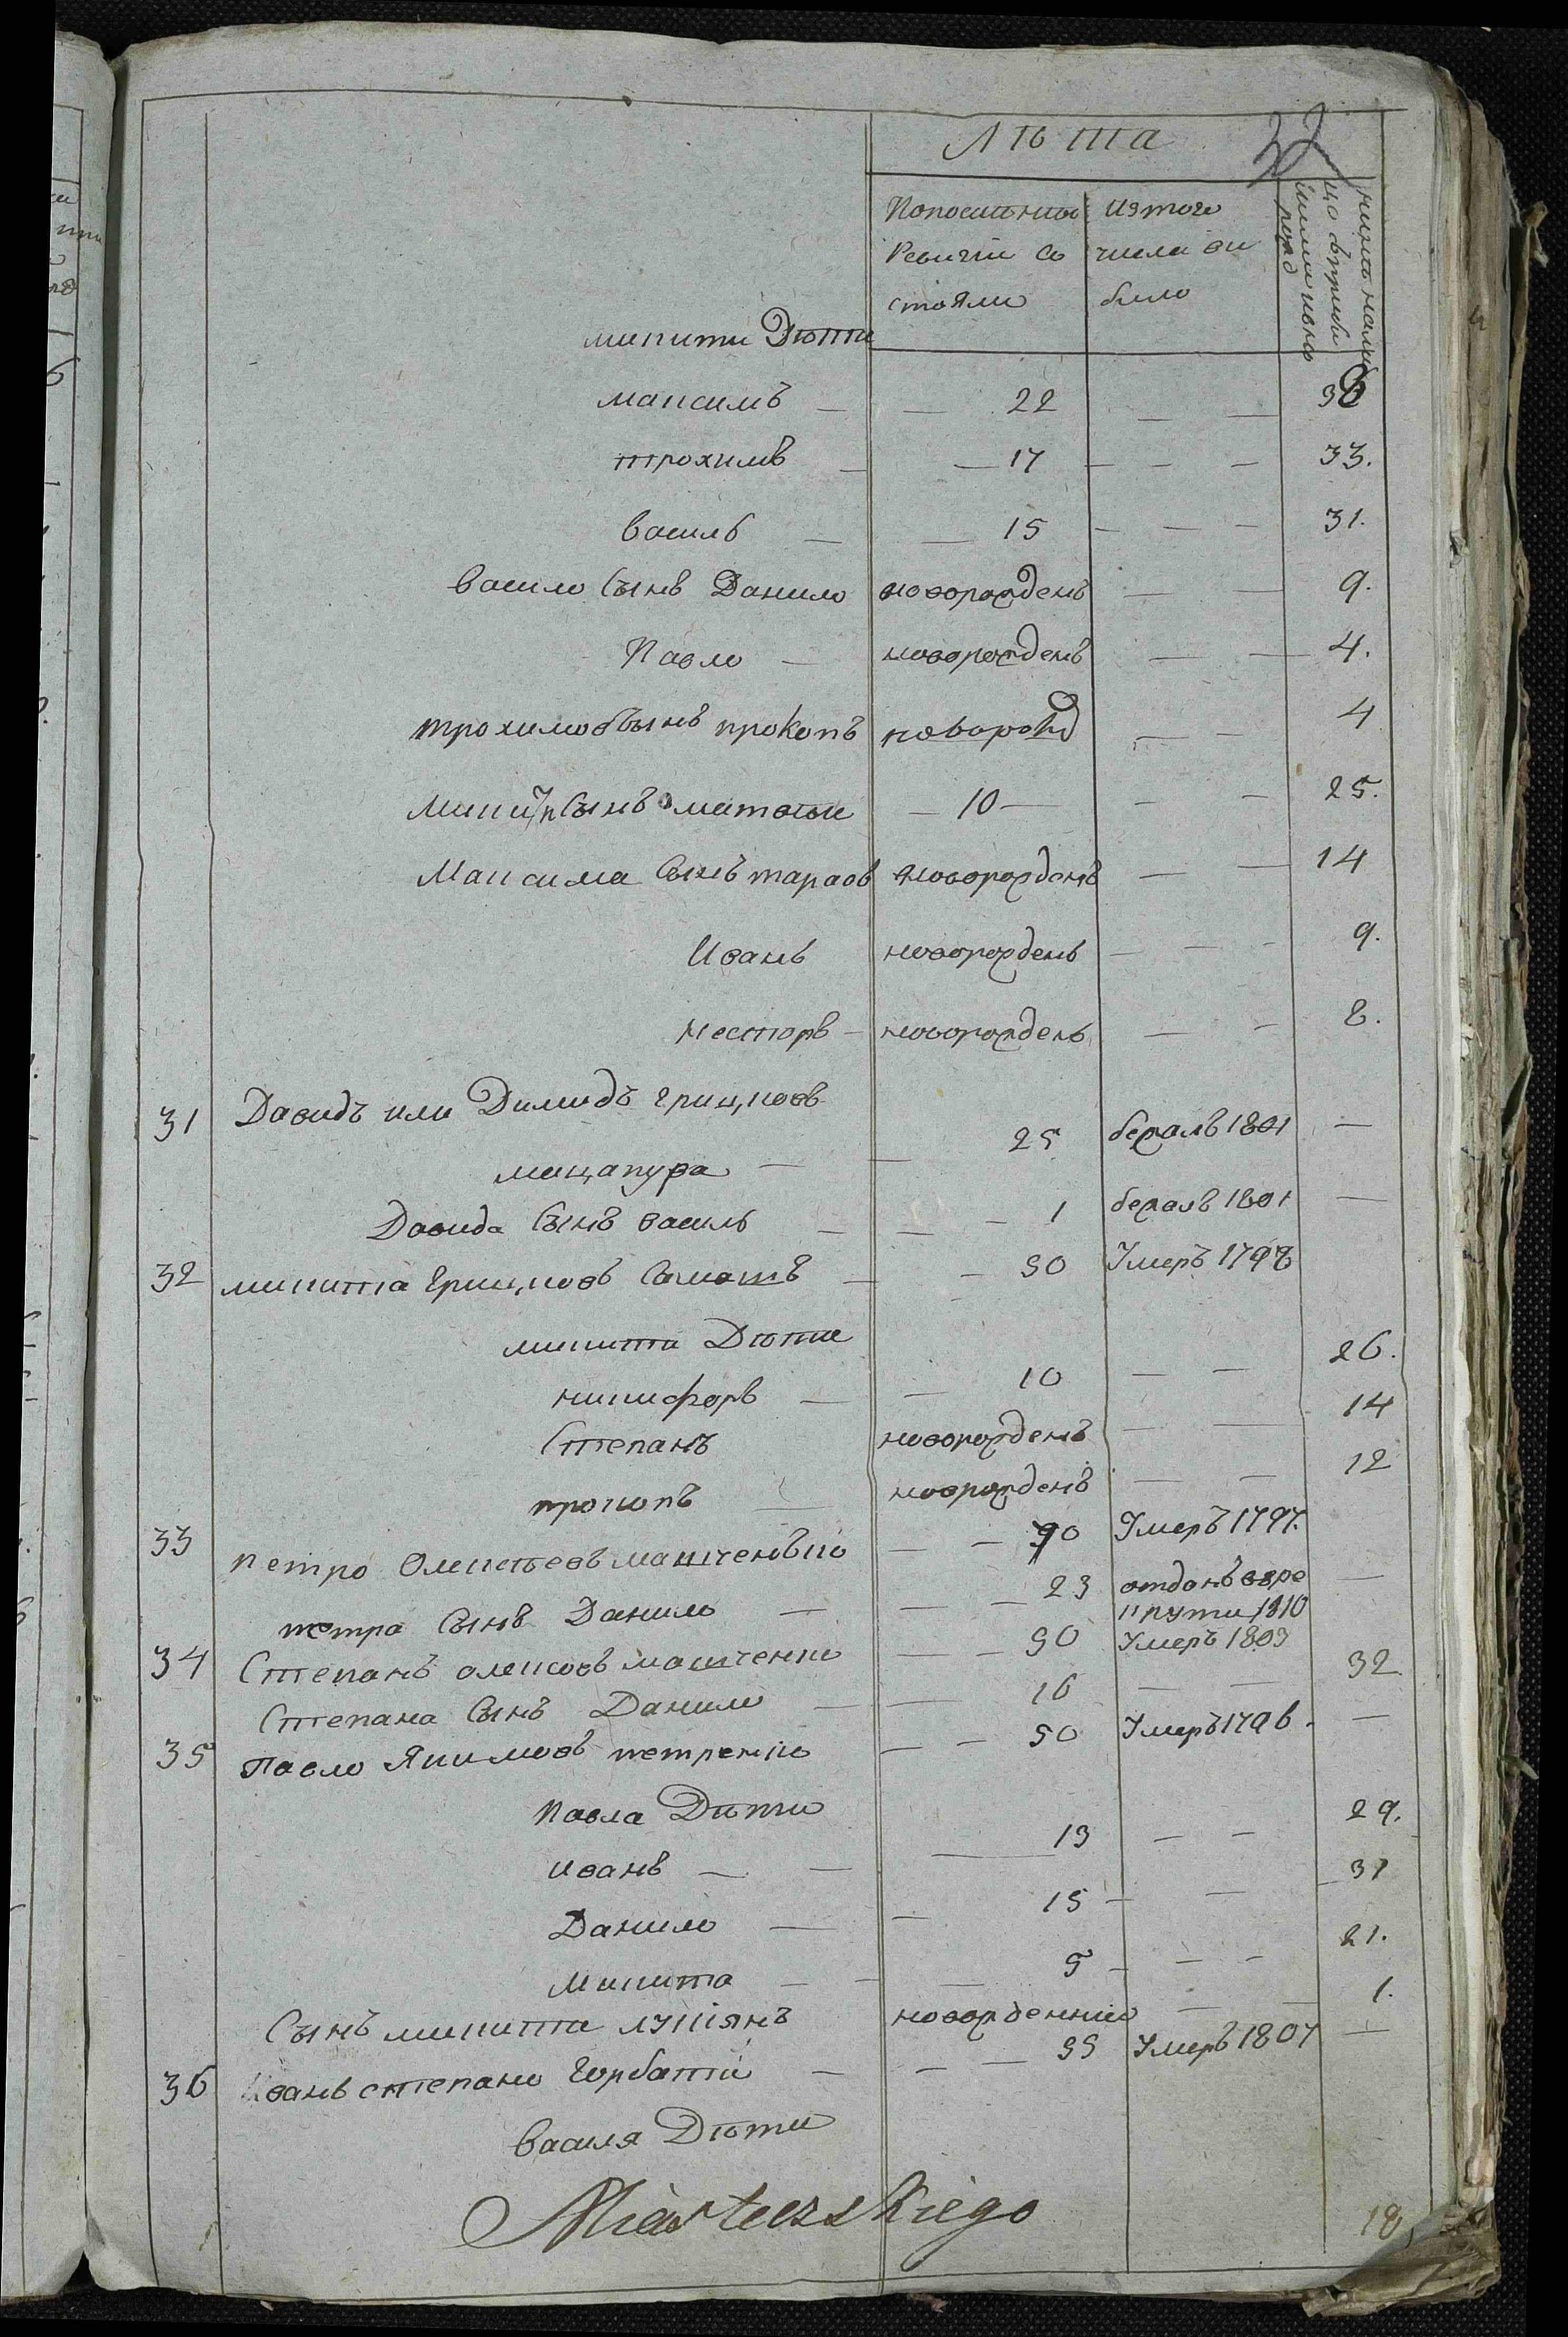 Лѣта
Попослѣднѣй Изтого
Ревизіи со числа вы
стояли было
микити Дѣти
максимъ — — 22 — — 38
трохимъ — — 17 — — — 33.
василь — — 15 — — — 31.
василю сынъ Данило новорожденъ — — 9.
Павло — новорожденъ — — 4.
трохимовъ сынъ прокопъ новорожд — — 4
Микити сынъ матвѣи — 10 — — — 25.
Максима сынъ тарасъ новорожденъ — — 14
Иванъ новорожденъ — — - 9.
несторъ — новорожденъ — — 8.
31 Давидъ или Димидъ грицковъ
мацапура — — 25 бежалъ 1801 —
Давида сынъ василь — — — 1 бежалъ 1801 —
32 микита грицковъ — — 50 Умеръ 1798
микити Дѣти
никифоръ — — 10 — — 26.
Степанъ новорожденъ — — 14
прокопъ — новорожденъ — — 12
33 петро Олексѣевъ мащенько — — 70 Умеръ 1797.
петра сынъ Данило — — — 23 отданъ в ре —
круты 1810
34 Степанъ алексѣевъ мащенко — — 50 Умеръ 1803
Степана сынъ Данило — — 16 — — 32
35 Павло Якимовъ петренко — — 50 Умеръ 1796. —
Павла Дѣти
иванъ — — — 13 — — 29.
Данило — — 15 — — 31
Микита — — — 5 — — - 21.
Сынъ микити лукіянъ новорденний — — 1.
36 Иванъ степано горбатій — — — 55 Умеръ 1807 —
василя Дѣти
18